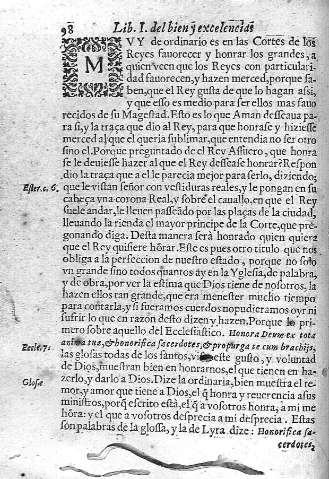 98
Lib. I. del bien y excelencias
MVY de ordinario es en las Cortes de los
Reyes fauorecer y honrar los grandes, a
quien veen que los Reyes con particulari-
dad fauorecen, y hazen merced, porque sa-
ben, que el Rey gusta de que lo hagan assi,
y que esso es medio para ser ellos mas fauo
recidos de su Magestad. Esto es lo que Aman desseaua pa-
ra si, y la traça que dio al Rey, para que honrasse y hiziesse
merced al que el queria sublimar, que entendia no ser otro
sino el. Porque preguntado del Rey Assuero, que honra
se le deuiesse hazer al que el Rey dessease honrar? Respon
dio la traça que a el le parecia mejor para serlo, diziendo;
Ester.c.6.
que le vistan señor con vestiduras reales, y le pongan en su
cabeça vna corona Real, y sobre el cauallo, en que el Rey
suele andar, le lleuen passeado por las plaças de la ciudad,
lleuando la rienda el mayor principe de la Corte, que pre-
gonando diga. Desta manera será honrado quien quiera
que el Rey quisiere hõrar. Este es pues otro titulo que nos
obliga a la perfeccion de nuestro estado, porque no solo
vn grande sino todos quantos ay en la Yglesia, de palabra,
y de obra, por ver la estima que Dios tiene de nosotros, la
hazen ellos tan grande, que era menester mucho tiempo
para contarla, y si fueramos cuerdos no pudieramos oyr ni
sufrir lo que en razon desto dizen y hazen. Porque lo pri
mero sobre aquello del Ecclesiastico. Honora Deum ex tota
Eccli.7.
anima tua, & honorifica sacerdotes, & propurga se cum brachijs,
las glosas todas de los santos, vista este gusto, y voluntad
de Dios, muestran bien en honrarnos, el que tienen en ha-
Glosa
zerlo, y darlo a Dios. Dize la ordinaria, bien muestra el te-
mor, y amor que tiene a Dios, el q̃ honra y reuerencia a sus
ministros, porq̃ escrito está, el q̃ a vosotros honra, a mi me
hõra: y el que a vosotros desprecia a mi desprecia. Estas
son palabras de la glossa, y la de Lyra dize: Honorifica sa-
cerdotes,